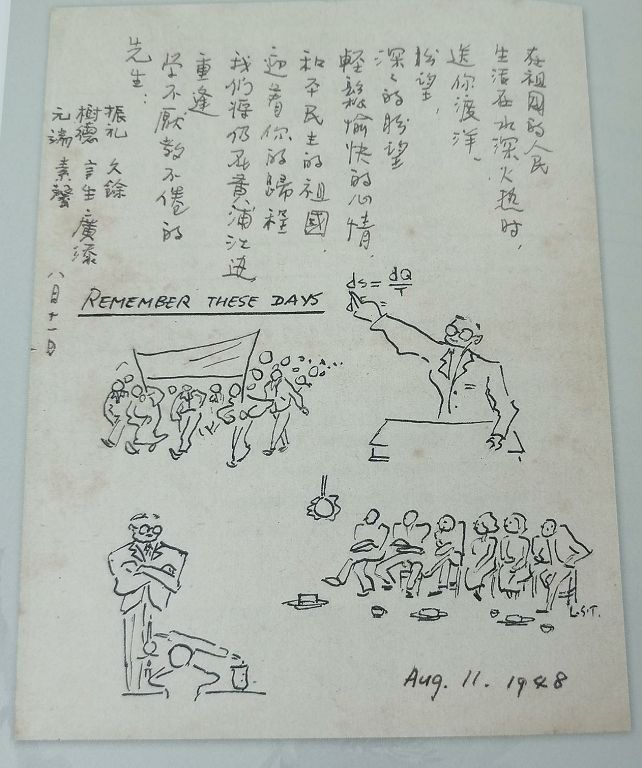 在祖國的人民
生活在水深火热时，
送你渡洋。
盼望，
深深的盼望
輕鬆愉快的心情，
和平民主的祖國，
迎着你的歸程
我们将仍在黄浦江边
重逢
学不厭教不倦的
先生：
振礼 文餘
樹德 言生 廣漆
元瑞 素馨
八月十一日
REMEMBER THESE DAYS
ds = dQ/T
d =
L.S.T.
Aug. 11. 1948